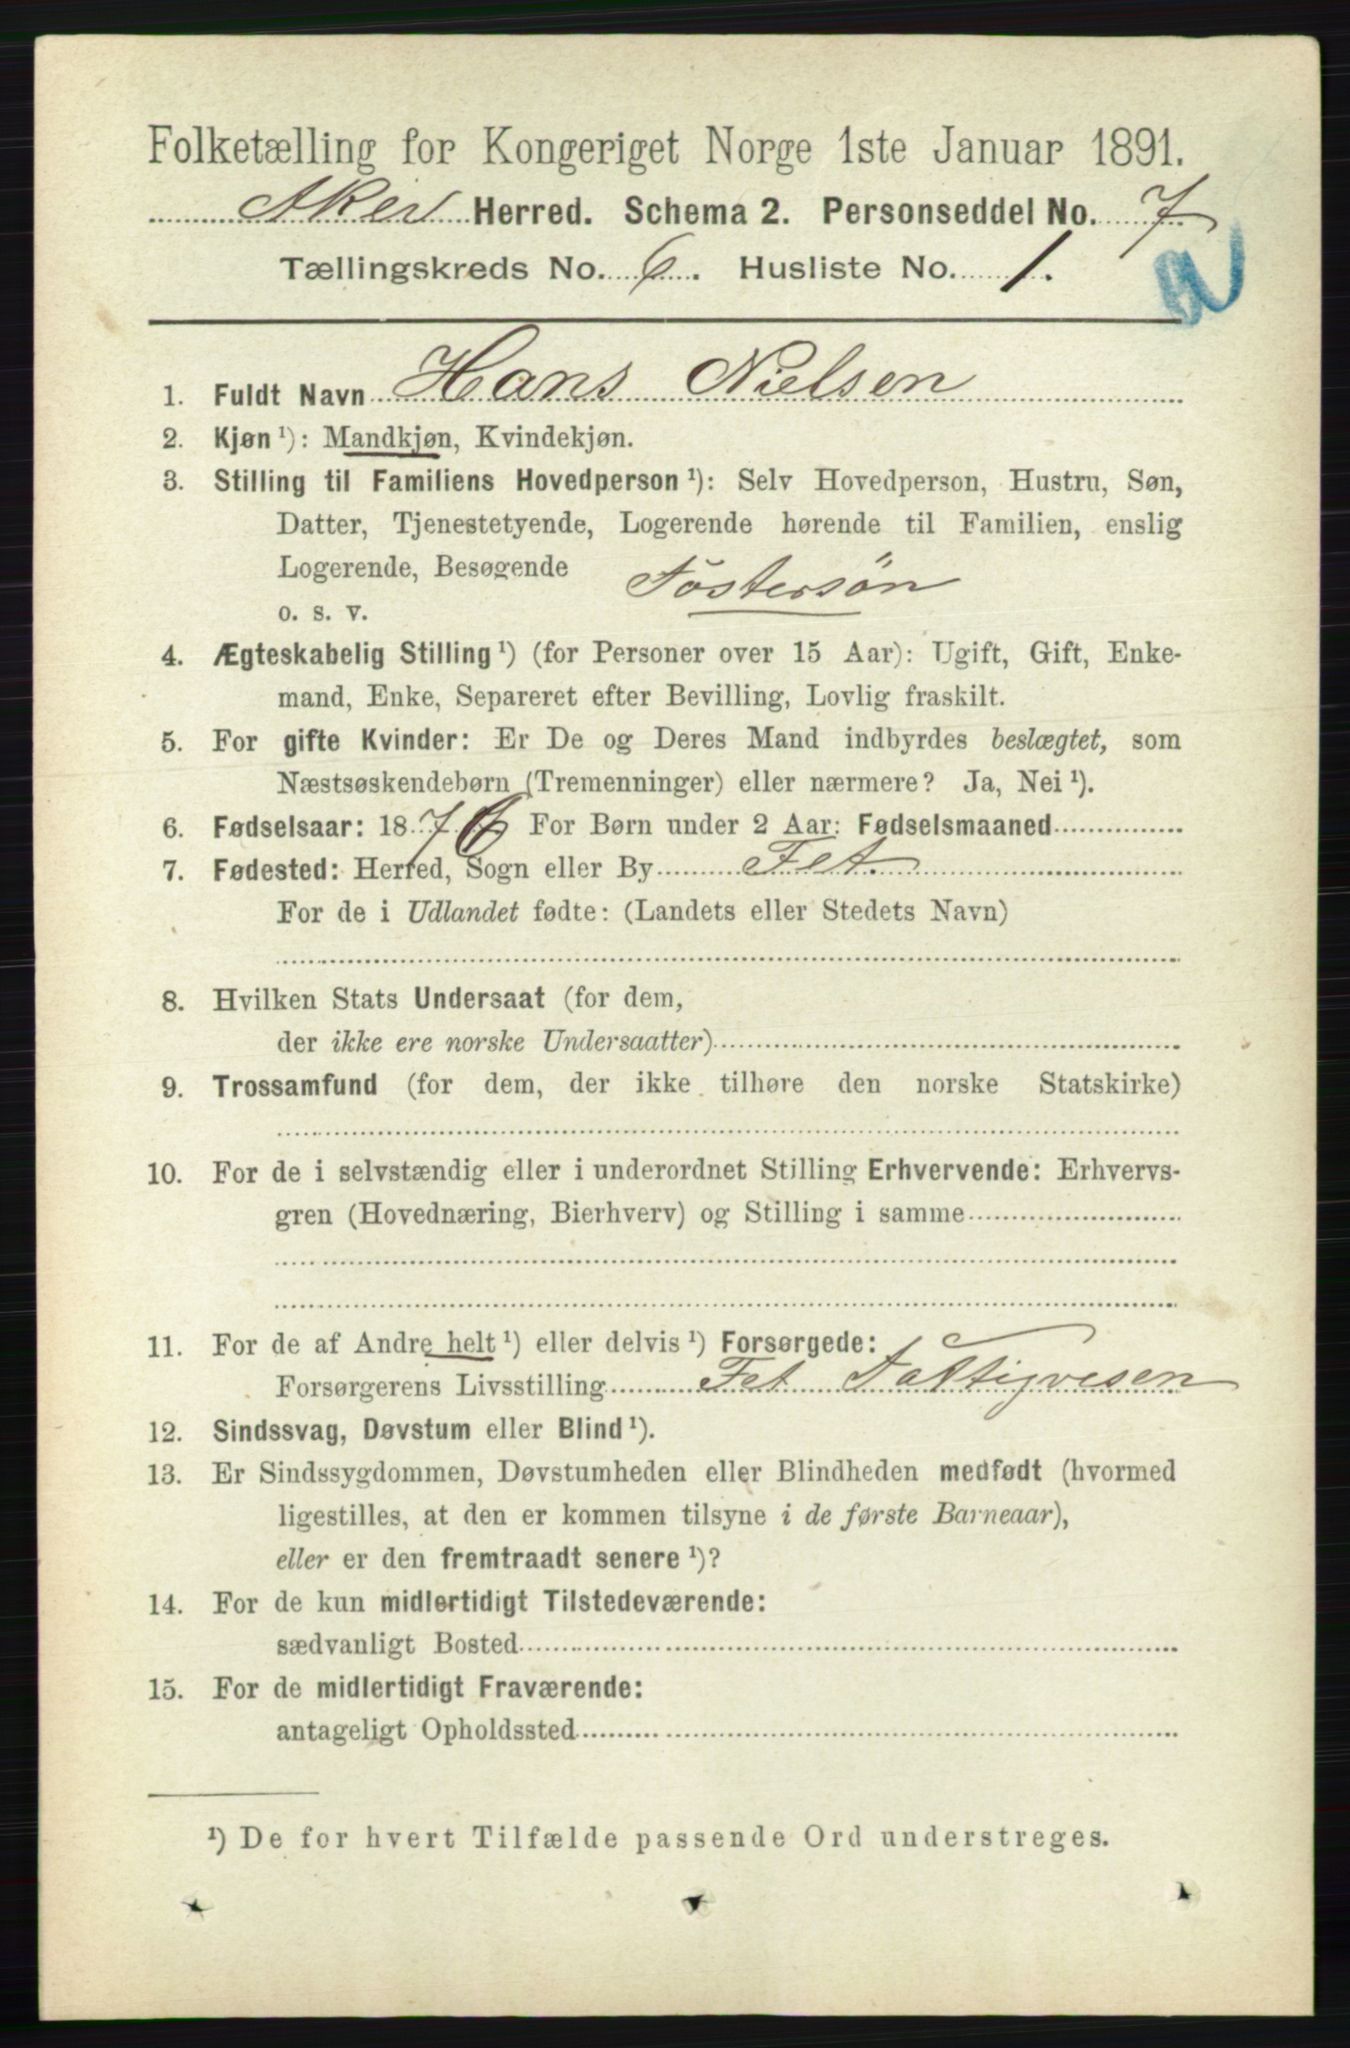 Folketælling for Kongeriget Norge 1ste Januar 1891.
Aker Herred. Schema 2. Personseddel No. 7
Tællingskreds No. 6. Husliste No. 1.
1. Fuldt Navn Hans Nielsen
2. Kjøn ¹): Mandkjøn, Kvindekjøn.
3. Stilling til Familiens Hovedperson ¹): Selv Hovedperson, Hustru, Søn,
Datter, Tjenestetyende, Logerende hørende til Familien, enslig
Logerende, Besøgende Fostersøn
o. s. v.
4. Ægteskabelig Stilling ¹) (for Personer over 15 Aar): Ugift, Gift, Enke-
mand, Enke, Separeret efter Bevilling, Lovlig fraskilt.
5. For gifte Kvinder: Er De og Deres Mand indbyrdes beslægtet, som
Næstsøskendebørn (Tremenninger) eller nærmere? Ja, Nei ¹).
6. Fødselsaar: 1876 For Børn under 2 Aar: Fødselsmaaned
7. Fødested: Herred, Sogn eller By Fet.
For de i Udlandet fødte: (Landets eller Stedets Navn)
8. Hvilken Stats Undersaat (for dem,
der ikke ere norske Undersaatter)
9. Trossamfund (for dem, der ikke tilhøre den norske Statskirke)
10. For de i selvstændig eller i underordnet Stilling Erhvervende: Erhvervs-
gren (Hovednæring, Bierhverv) og Stilling i samme
11. For de af Andre helt ¹) eller delvis ¹) Forsørgede:
Forsørgerens Livsstilling Fet Fattigvesen
12. Sindssvag, Døvstum eller Blind ¹).
13. Er Sindssygdommen, Døvstumheden eller Blindheden medfødt (hvormed
ligestilles, at den er kommen tilsyne i de første Barneaar),
eller er den fremtraadt senere ¹)?
14. For de kun midlertidigt Tilstedeværende:
sædvanligt Bosted
15. For de midlertidigt Fraværende:
antageligt Opholdssted
¹) De for hvert Tilfælde passende Ord understreges.